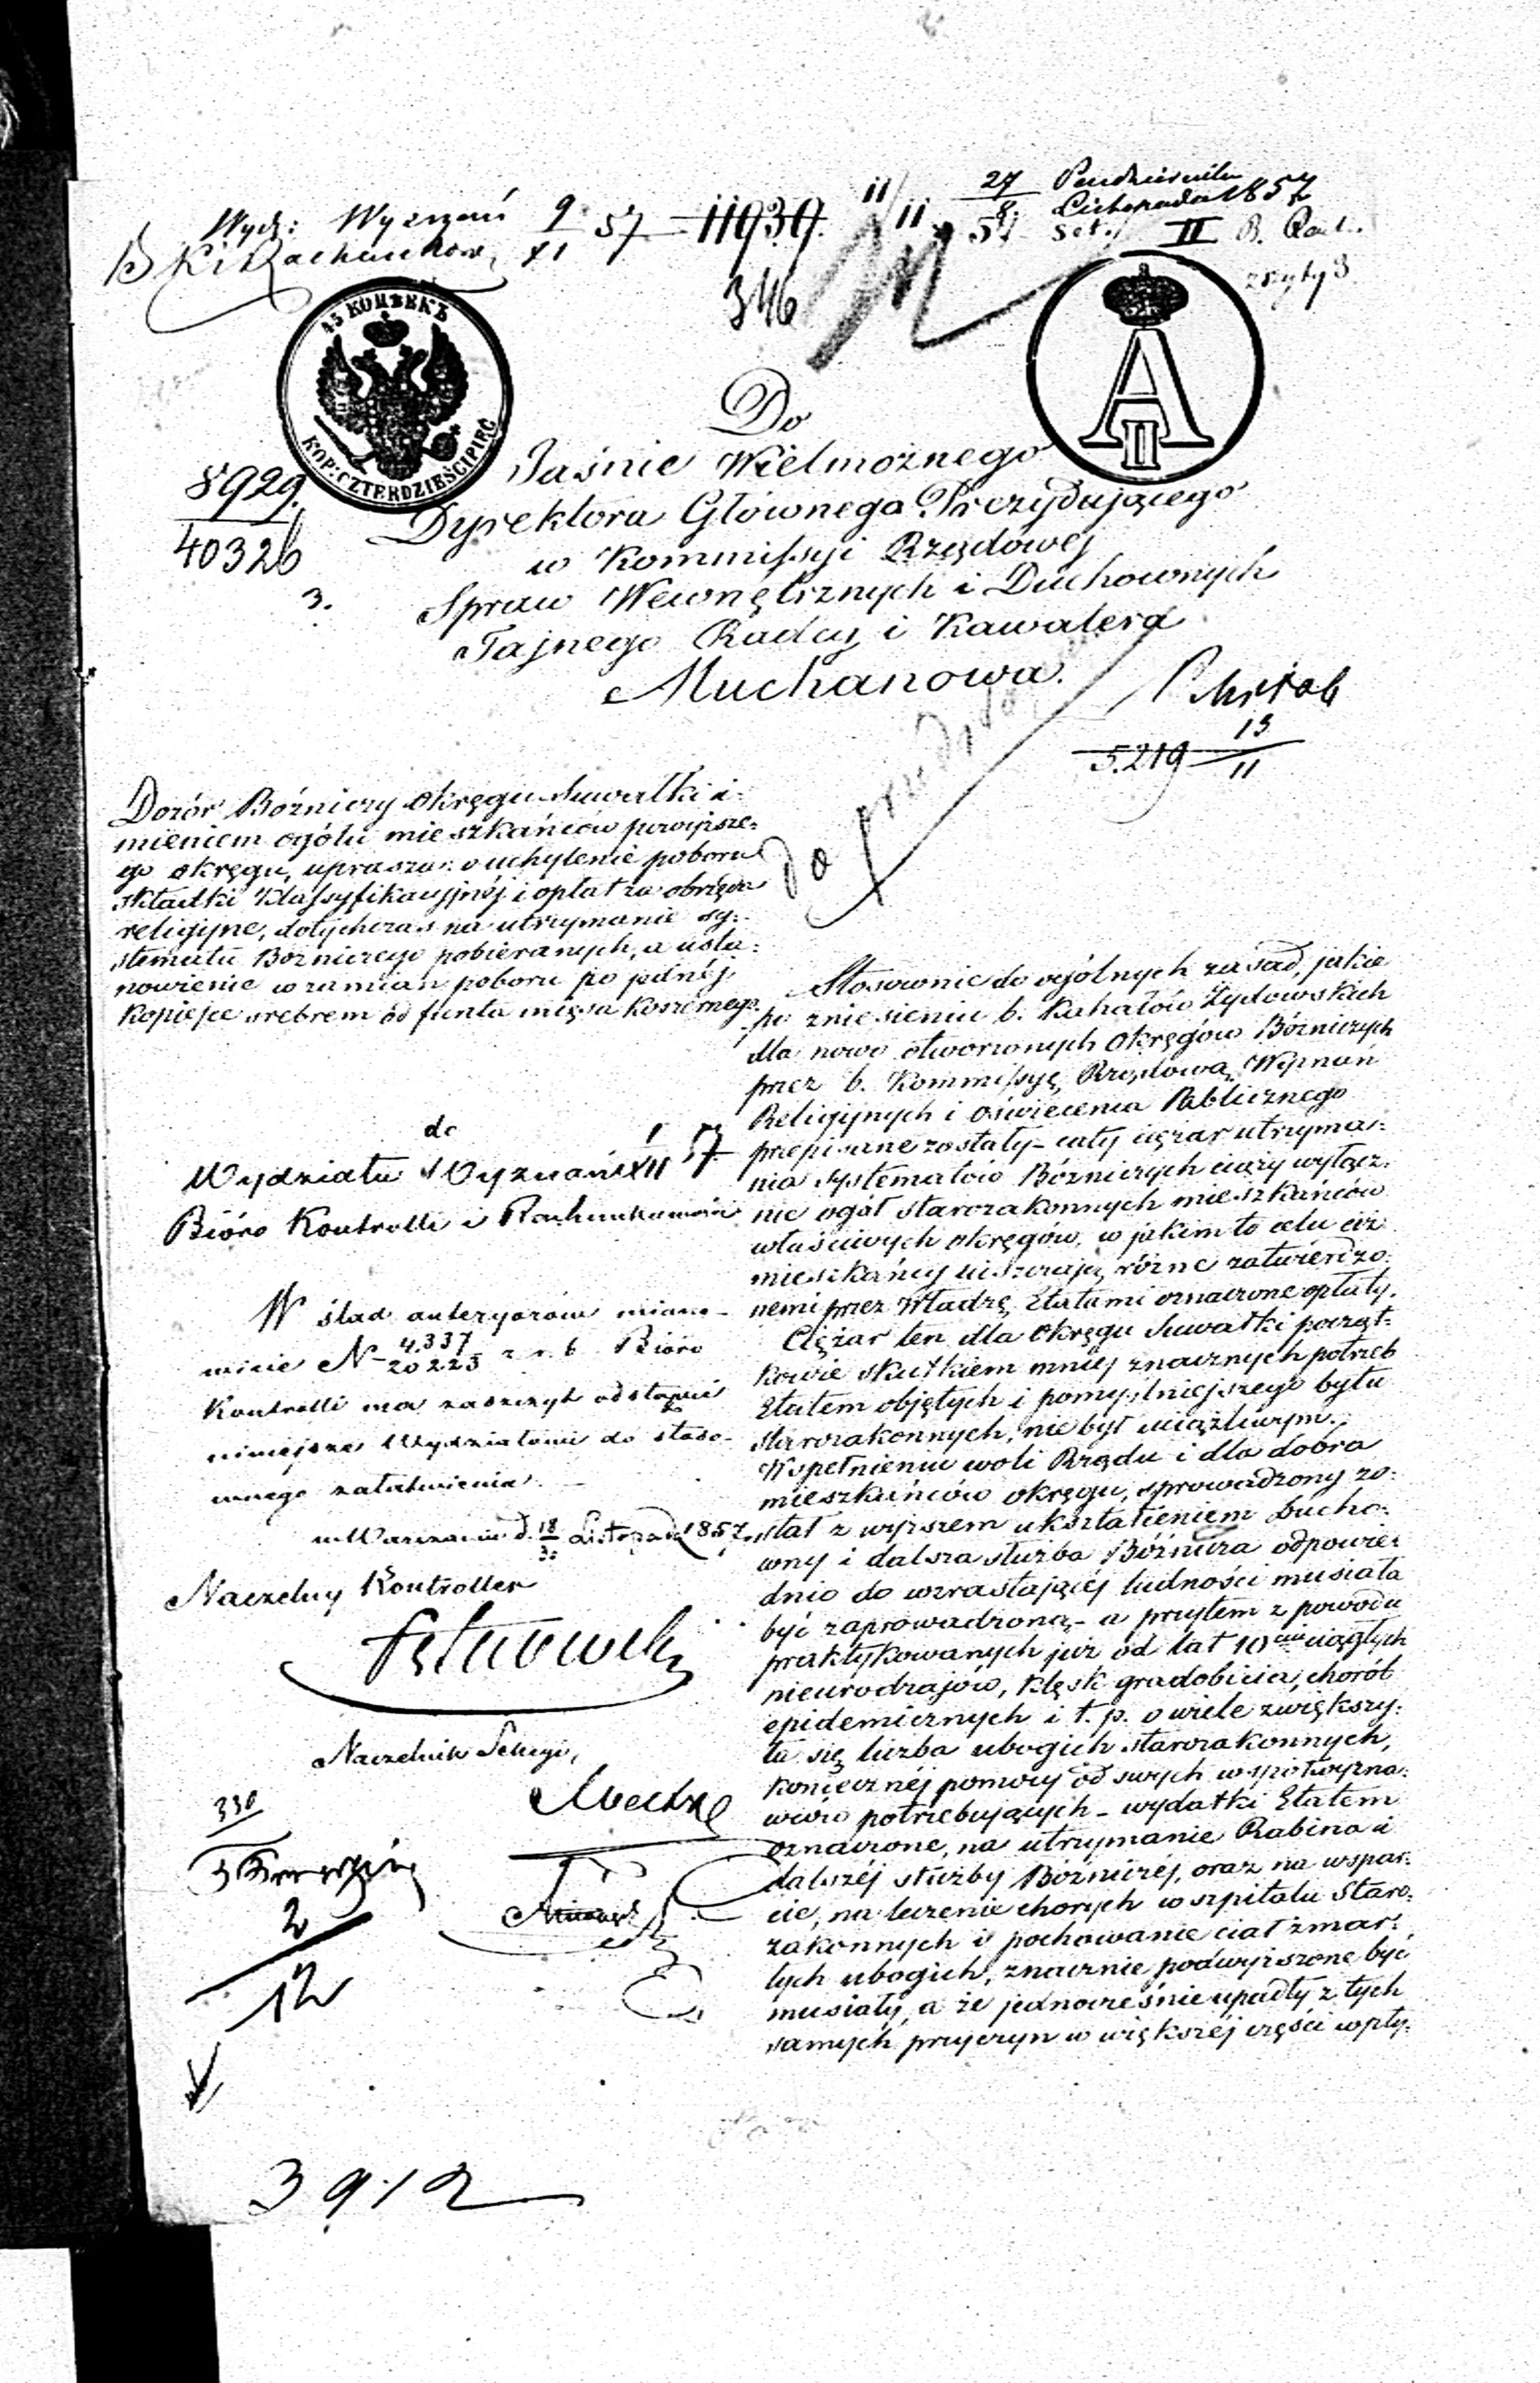 Wydz: Wyznań 9/XI 57 11939. 11/11 57
27 Października
8. Listopada 1857
B. K. i Rachunkow,
Set. II B. Rach.
zszyty 3
346
45 КОПѢЕКЪ
KOP: CZTERDZIEŚCI PIĘĆ
A II
8929.
40326
3.
Do
Jaśnie Wielmożnego
Dyrektora Głównego Prezydującego
w Kommissyi Rządowej
Spraw Wewnętrznych i Duchownych
Tajnego Radcy i Kawalera
Muchanowa.
5.219 13/11
Dozór Bóźniczy Okręgu Suwałki i-
mieniem ogółu mieszkańców powyższe-
go okręgu, uprasza: o uchylenie poboru
składki klassyfikacyjnéj i opłat za obrzęda
religijne, dotychczas na utrzymanie sy-
stematu Bóżniczego pobieranych, a usta-
nowienie w zamian poboru po jednéj
kopiejce srebrem od funta mięsa koszernego.
do
Wydziału Wyznań
Bióro Kontrolli i Rachunkowości
W ślad anteryorów miano-
wicie N 4337/20225 z r. b. Bióro
Kontrolli ma zaszczyt odstąpić
niniejsze Wydziałowi do stoso-
wnego załatwienia.
w Warszawie d. 18/30 Listopada 1857.
Naczelny Kontroller
Naczelnik Sekcyi,
330
2
12
3912
Stosownie do ogólnych zasad, jakie
po zniesieniu b. Kahałów Żydowskich
dla nowo otworzonych Okręgów Bóżniczych
przez b. Kommissyę Rządową Wyznań
Religijnych i Oświecenia Publicznego
przepisane zostały - cały ciężar utrzyma-
nia systematów Bóżniczych ciąży wyłącz-
nie ogół starozakonnych mieszkańców
właściwych okręgów, w jakim to celu ciż
mieszkańcy uiszczają różne zatwierdzo-
nemi przez Władzę Etatami oznaczone opłaty.
Ciężar ten dla Okręgu Suwałki począt-
kowie skutkiem mniej znacznych potrzeb
Etatem objętych i pomyślniejszego bytu
starozakonnych, nie był uciążliwym.
W spełnieniu woli Rządu i dla dobra
mieszkańców okręgu, sprowadzony zo-
stał z wyższem ukształceniem Ducho-
wny i dalsza służba Bóżnicza odpowie-
dnio do wzrastającéj ludności musiała
być zaprowadzoną - a przytem z powodu
praktykowanych już od lat 10ciu ciągłych
nieurodzajów, klęsk gradobicia, chorób
epidemicznych i t. p. o wiele zwiększy-
ła się liczba ubogich starozakonnych,
koniecznéj pomocy od swych współwyzna-
wców potrzebujących - wydatki Etatem
oznaczone, na utrzymanie Rabina i
dalszéj służby Bóżniczéj, oraz na wspar-
cie, na leczenie chorych w szpitalu Staro-
zakonnych i pochowanie ciał zmar-
łych ubogich, znacznie podwyższone być
musiały, a że jednocześnie upadły z tych
samych przyczyn w większéj części wpły-